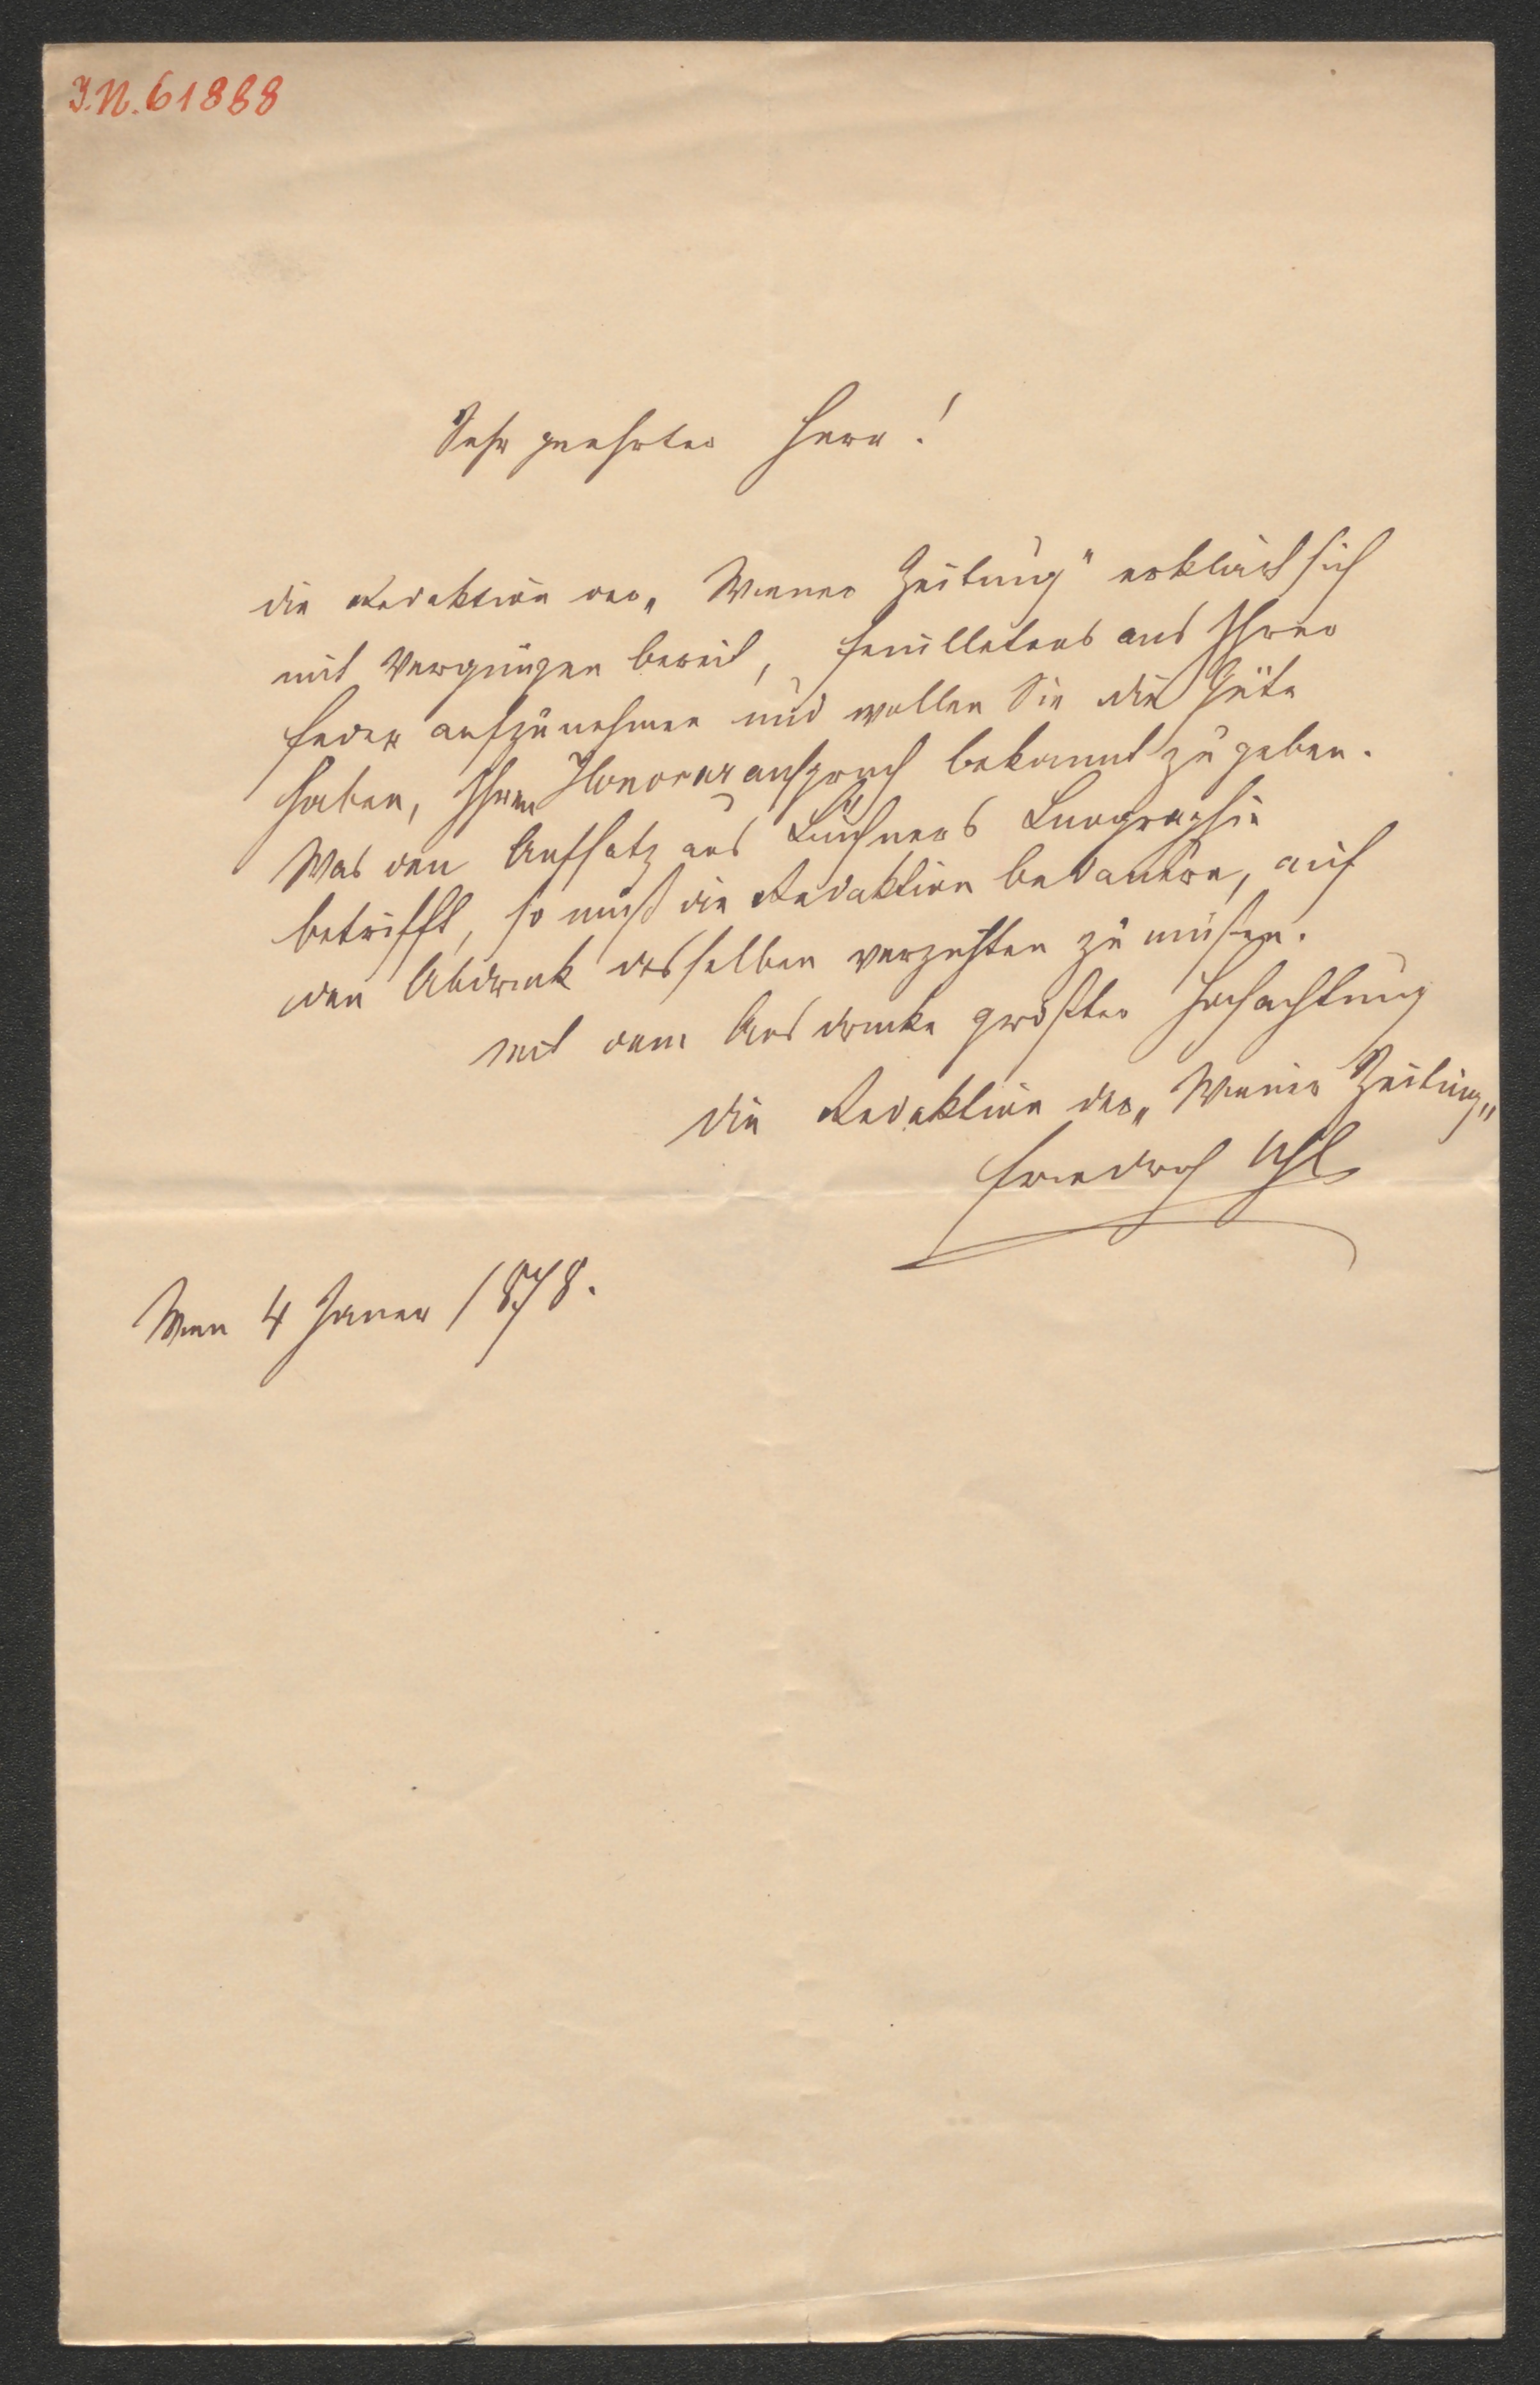 I.N. 61888
Sehr geehrter Herr!
die Redaktion der „Wiener Zeitung" erklärt sich
mit Vergnügen bereit, Feuilletons aus Ihrer
Feder aufzunehmen und wollen Sie die Güte
haben, Ihren Honoraranspruch bekannt zu geben.
Was den Aufsatz aus Büchners Biographie
betrifft, so muß die Redaktion bedauern, auf
den Abdruck desselben verzichten zu müssen.
Mit dem Ausdrucke größter Hochachtung
die Redaktion der „Wiener Zeitung"
Friedrich Uhl
Wien 4 Jäner 1878.